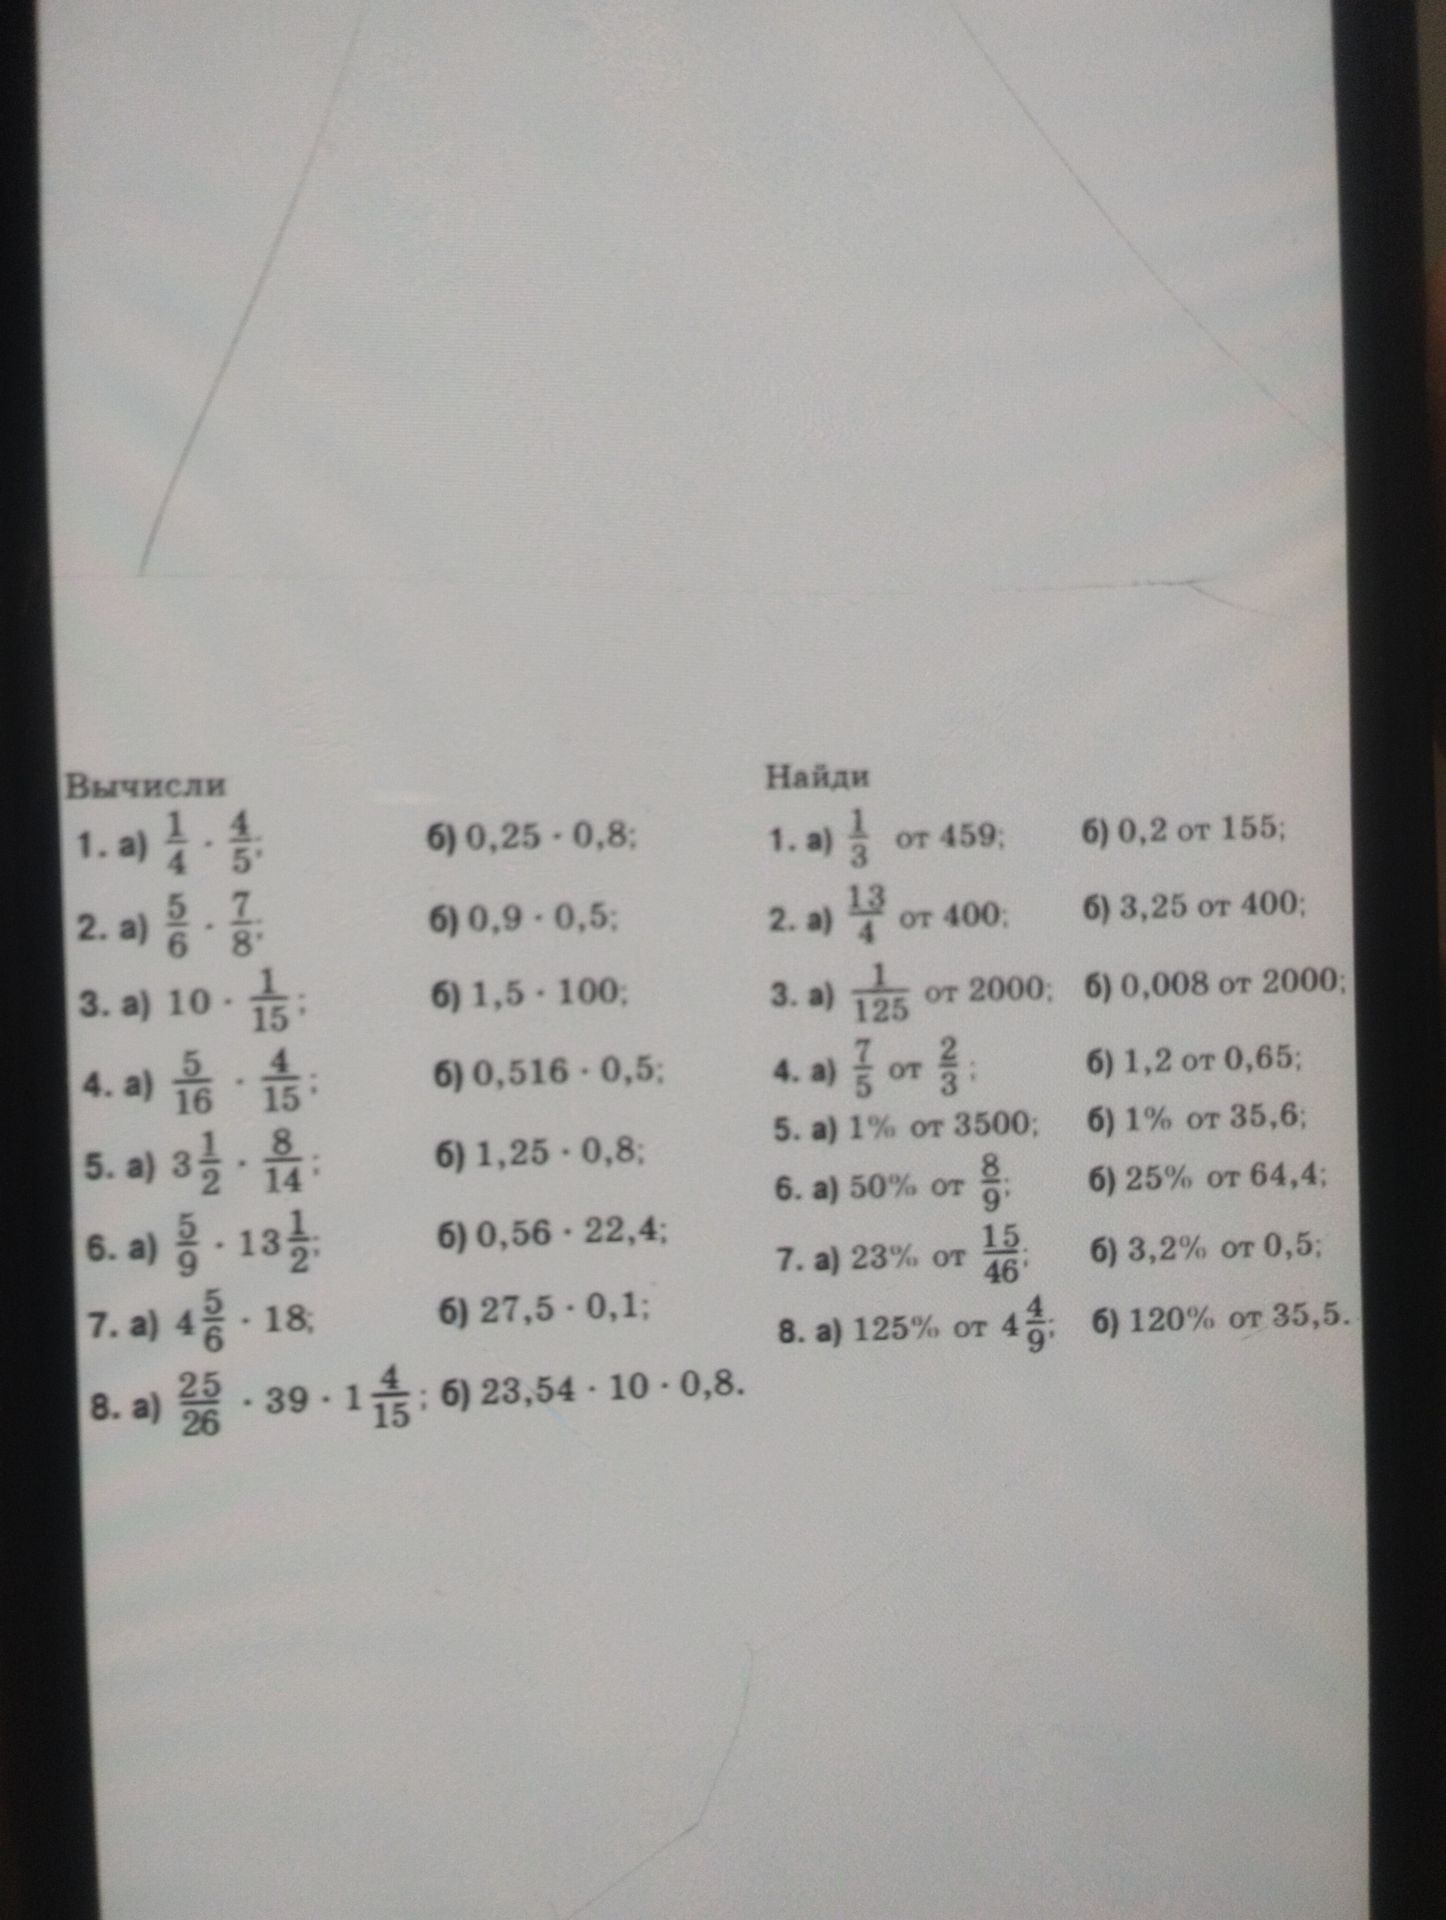 Вычисли
1. а) 1/4 · 4/5; б) 0,25 · 0,8;
2. а) 5/6 · 7/8; б) 0,9 · 0,5;
3. а) 10 · 1/15; б) 1,5 · 100;
4. а) 5/16 · 4/15; б) 0,516 · 0,5;
5. а) 3 1/2 · 8/14; б) 1,25 · 0,8;
6. а) 5/9 · 13 1/2; б) 0,56 · 22,4;
7. а) 4 5/6 · 18; б) 27,5 · 0,1;
8. а) 25/26 · 39 · 1 4/15; б) 23,54 · 10 · 0,8.
Найди
1. а) 1/3 от 459; б) 0,2 от 155;
2. а) 13/4 от 400; б) 3,25 от 400;
3. а) 1/125 от 2000; б) 0,008 от 2000;
4. а) 7/5 от 2/3; б) 1,2 от 0,65;
5. а) 1% от 3500; б) 1% от 35,6;
6. а) 50% от 8/9; б) 25% от 64,4;
7. а) 23% от 15/46; б) 3,2% от 0,5;
8. а) 125% от 4 4/9; б) 120% от 35,5.